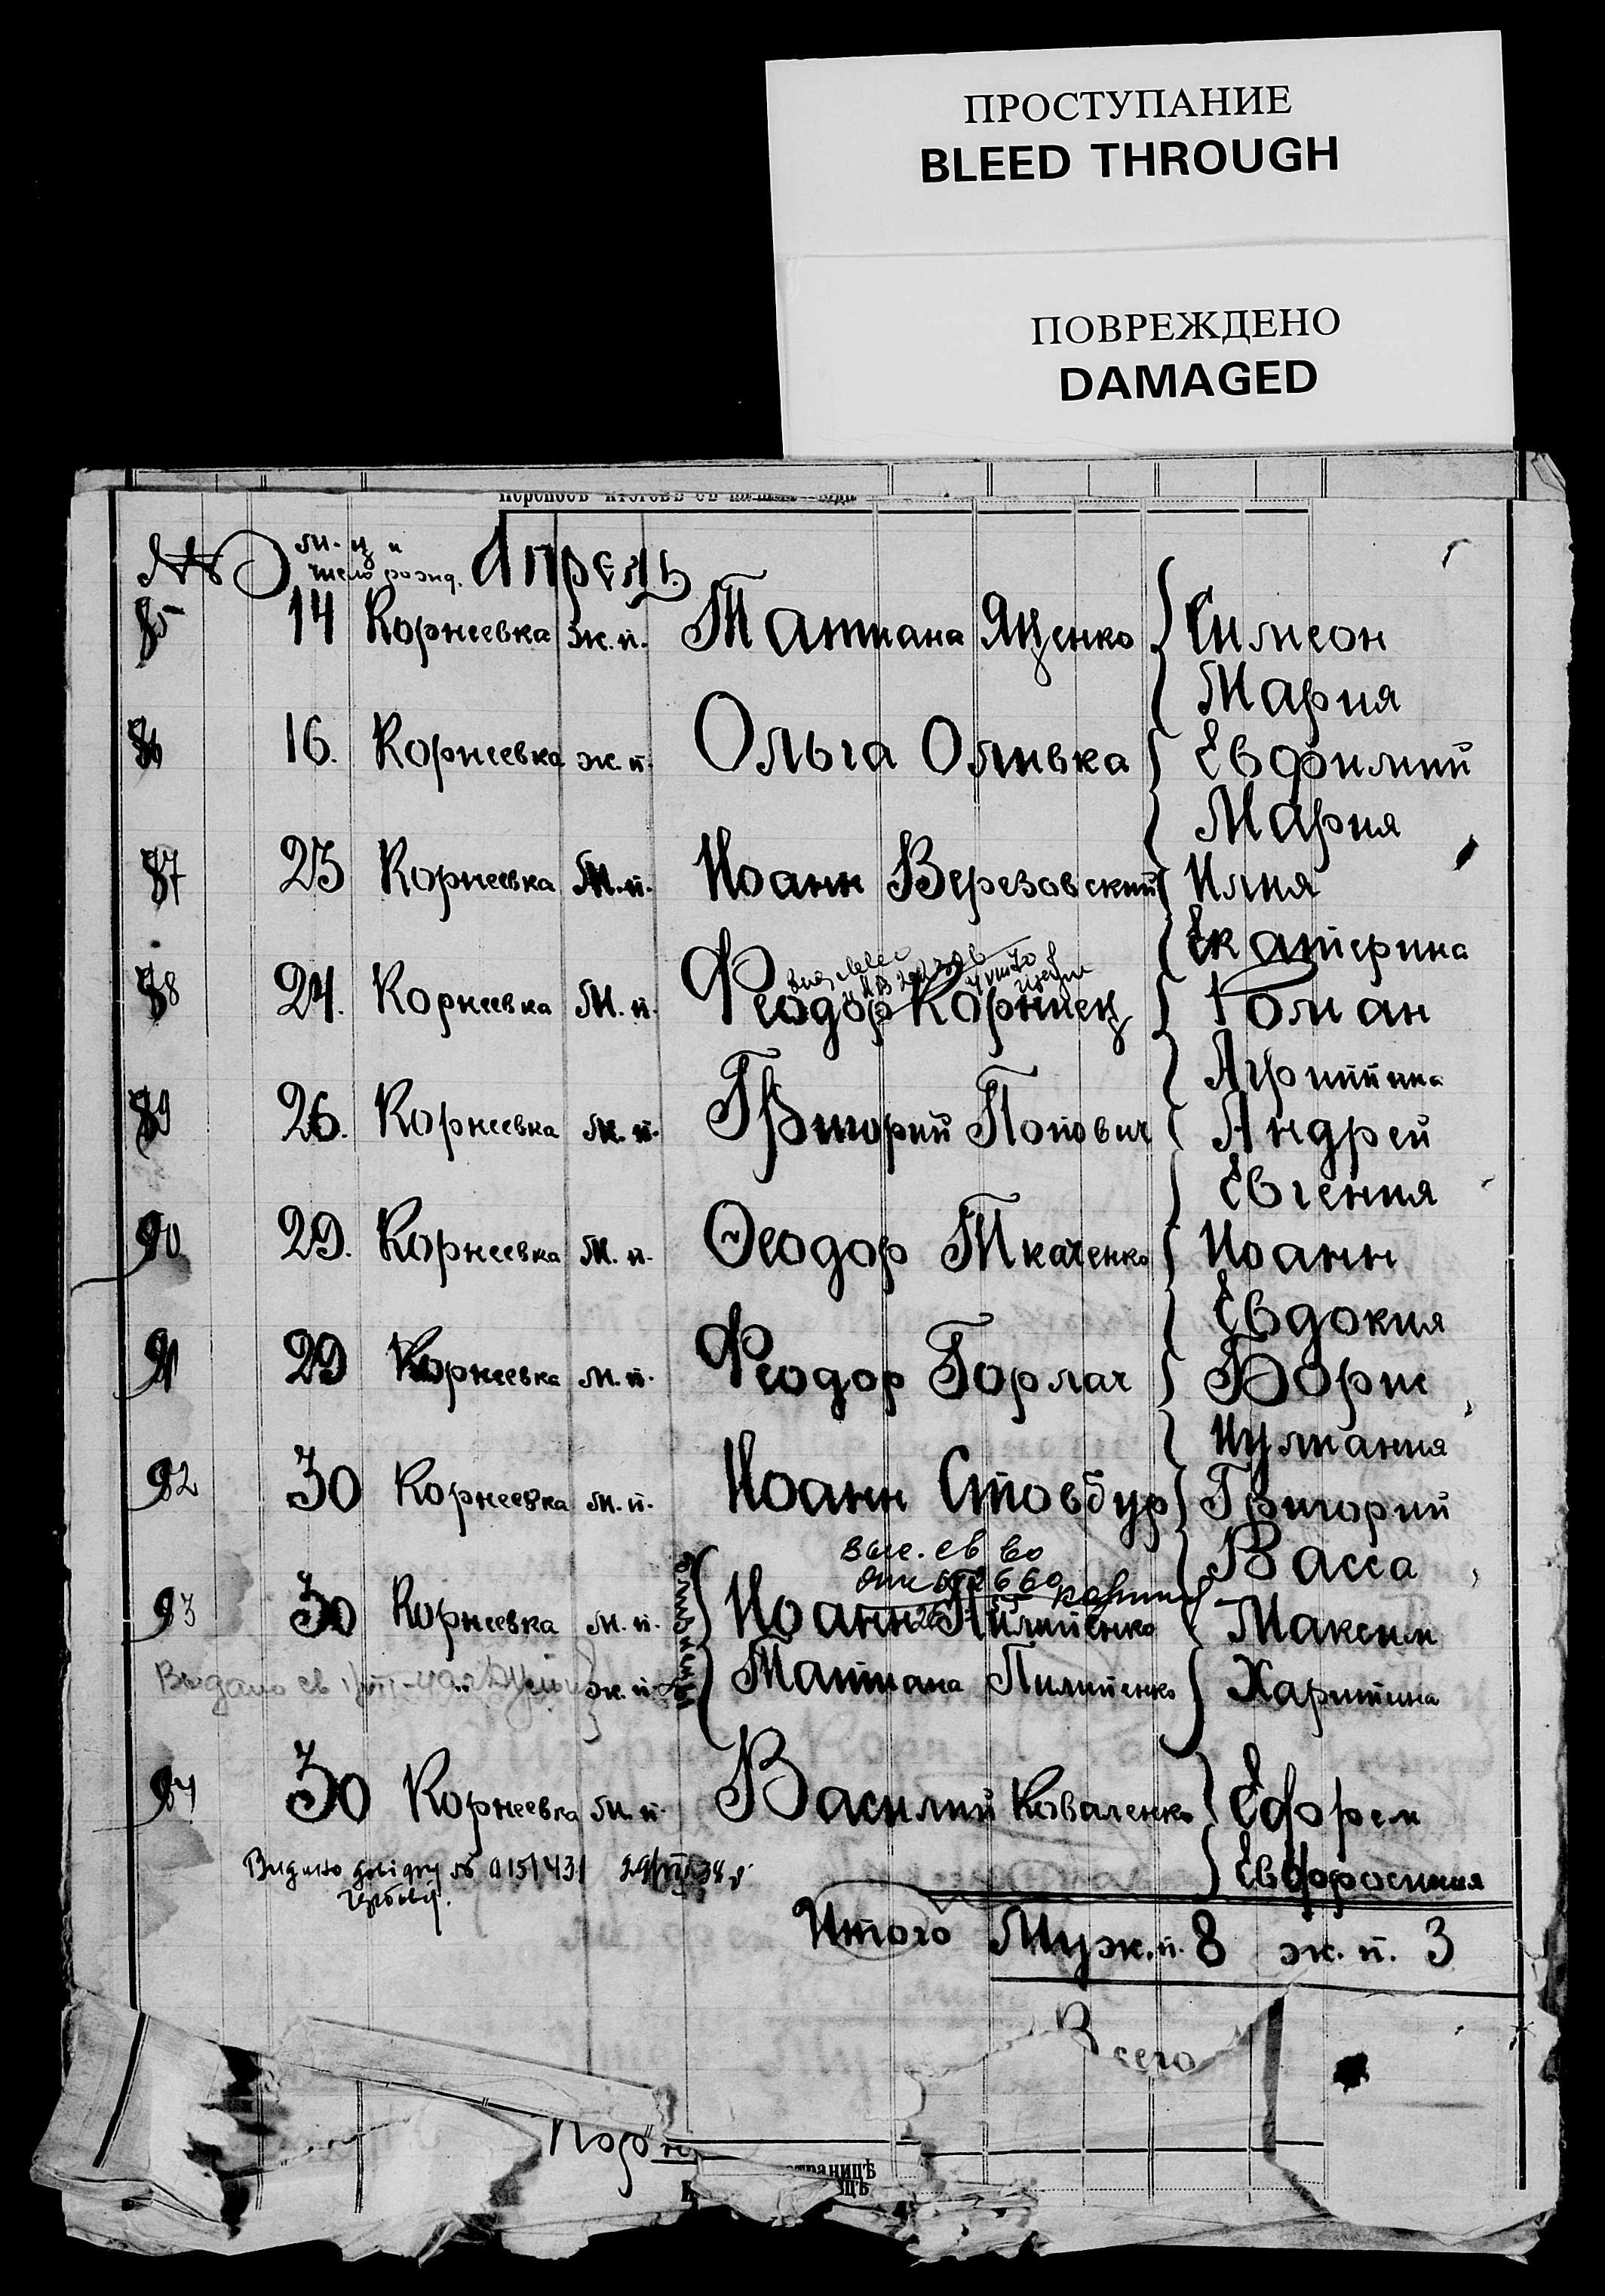 ПРОСТУПАНИЕ
BLEED THROUGH
ПОВРЕЖДЕНО
DAMAGED
№ м-ц и число рожд. Апрель
85 14 Корнеевка ж.п. Татиана Яценко Симеон
Мария
86 16. Корнеевка ж.п. Ольга Оливка Евфимий
Мария
87 23 Корнеевка М.п. Иоанн Березовский Илия
Екатерина
88 24. Корнеевка М.п. Феодор Корниец Роман
Агрипина
89 26. Корнеевка м.п. Григорий Попович Андрей
Евгения
90 29. Корнеевка М.п. Ѳеодор Ткаченко Иоанн
Евдокия
91 29 Корнеевка м.п. Феодор Горлач Борис
Иулиания
92 30 Корнеевка м.п. Иоанн Стовбур Григорий
Васса
93 30 Корнеевка м.п. близнецы Иоанн Пилипенко Максим
Выдано св ж.п. Татиана Пилипенко Харитина
94 30 Корнеевка М.п. Василий Коваленко Ефрем
Видано 29/VII 38 р. Евфросиния
Итого Муж.п. 8 ж.п. 3
Всего
страницѣ